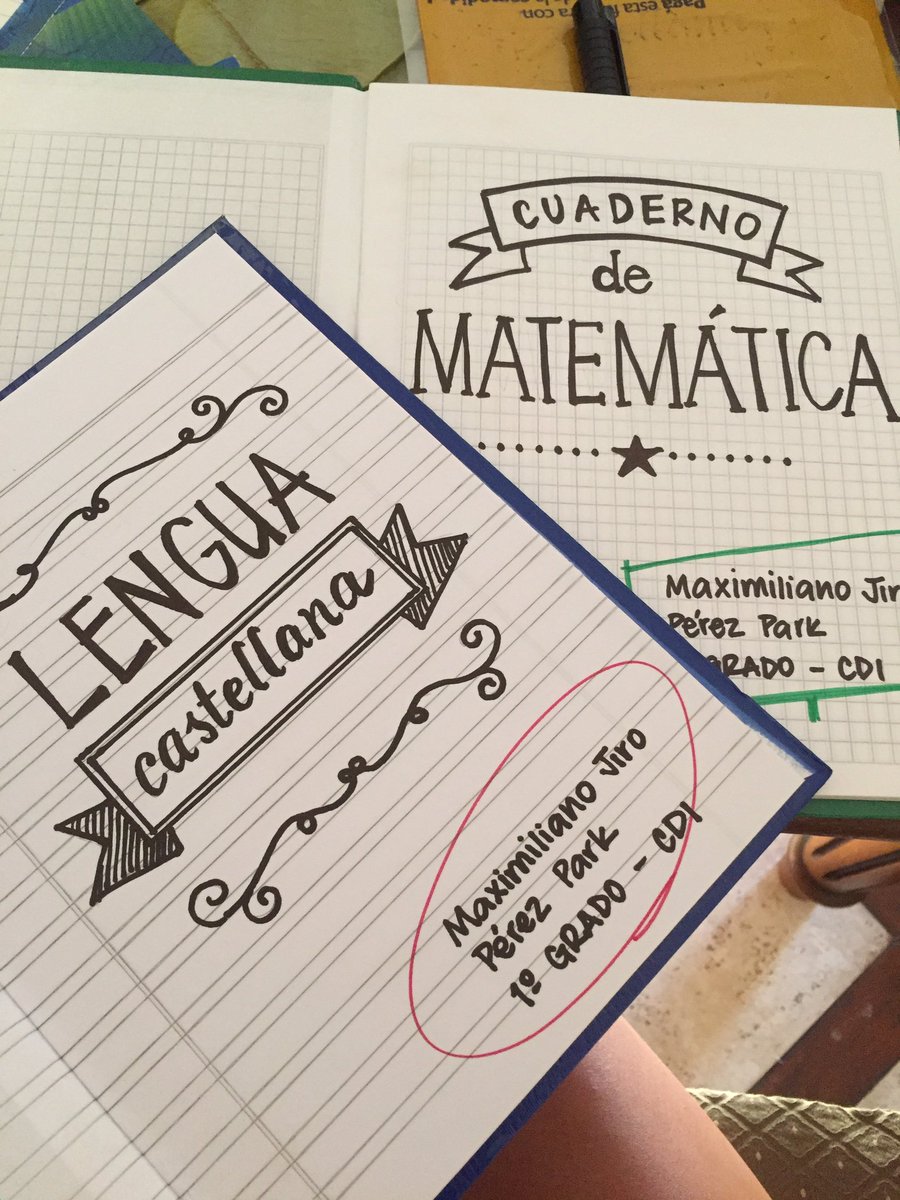 Pagá esta
con
CUADERNO
de
MATEMÁTICA
Maximiliano Jir
Pérez Park
GRADO - CDI
LENGUA
castellana
Maximiliano Jiro
Pérez Park
1º GRADO - CDI